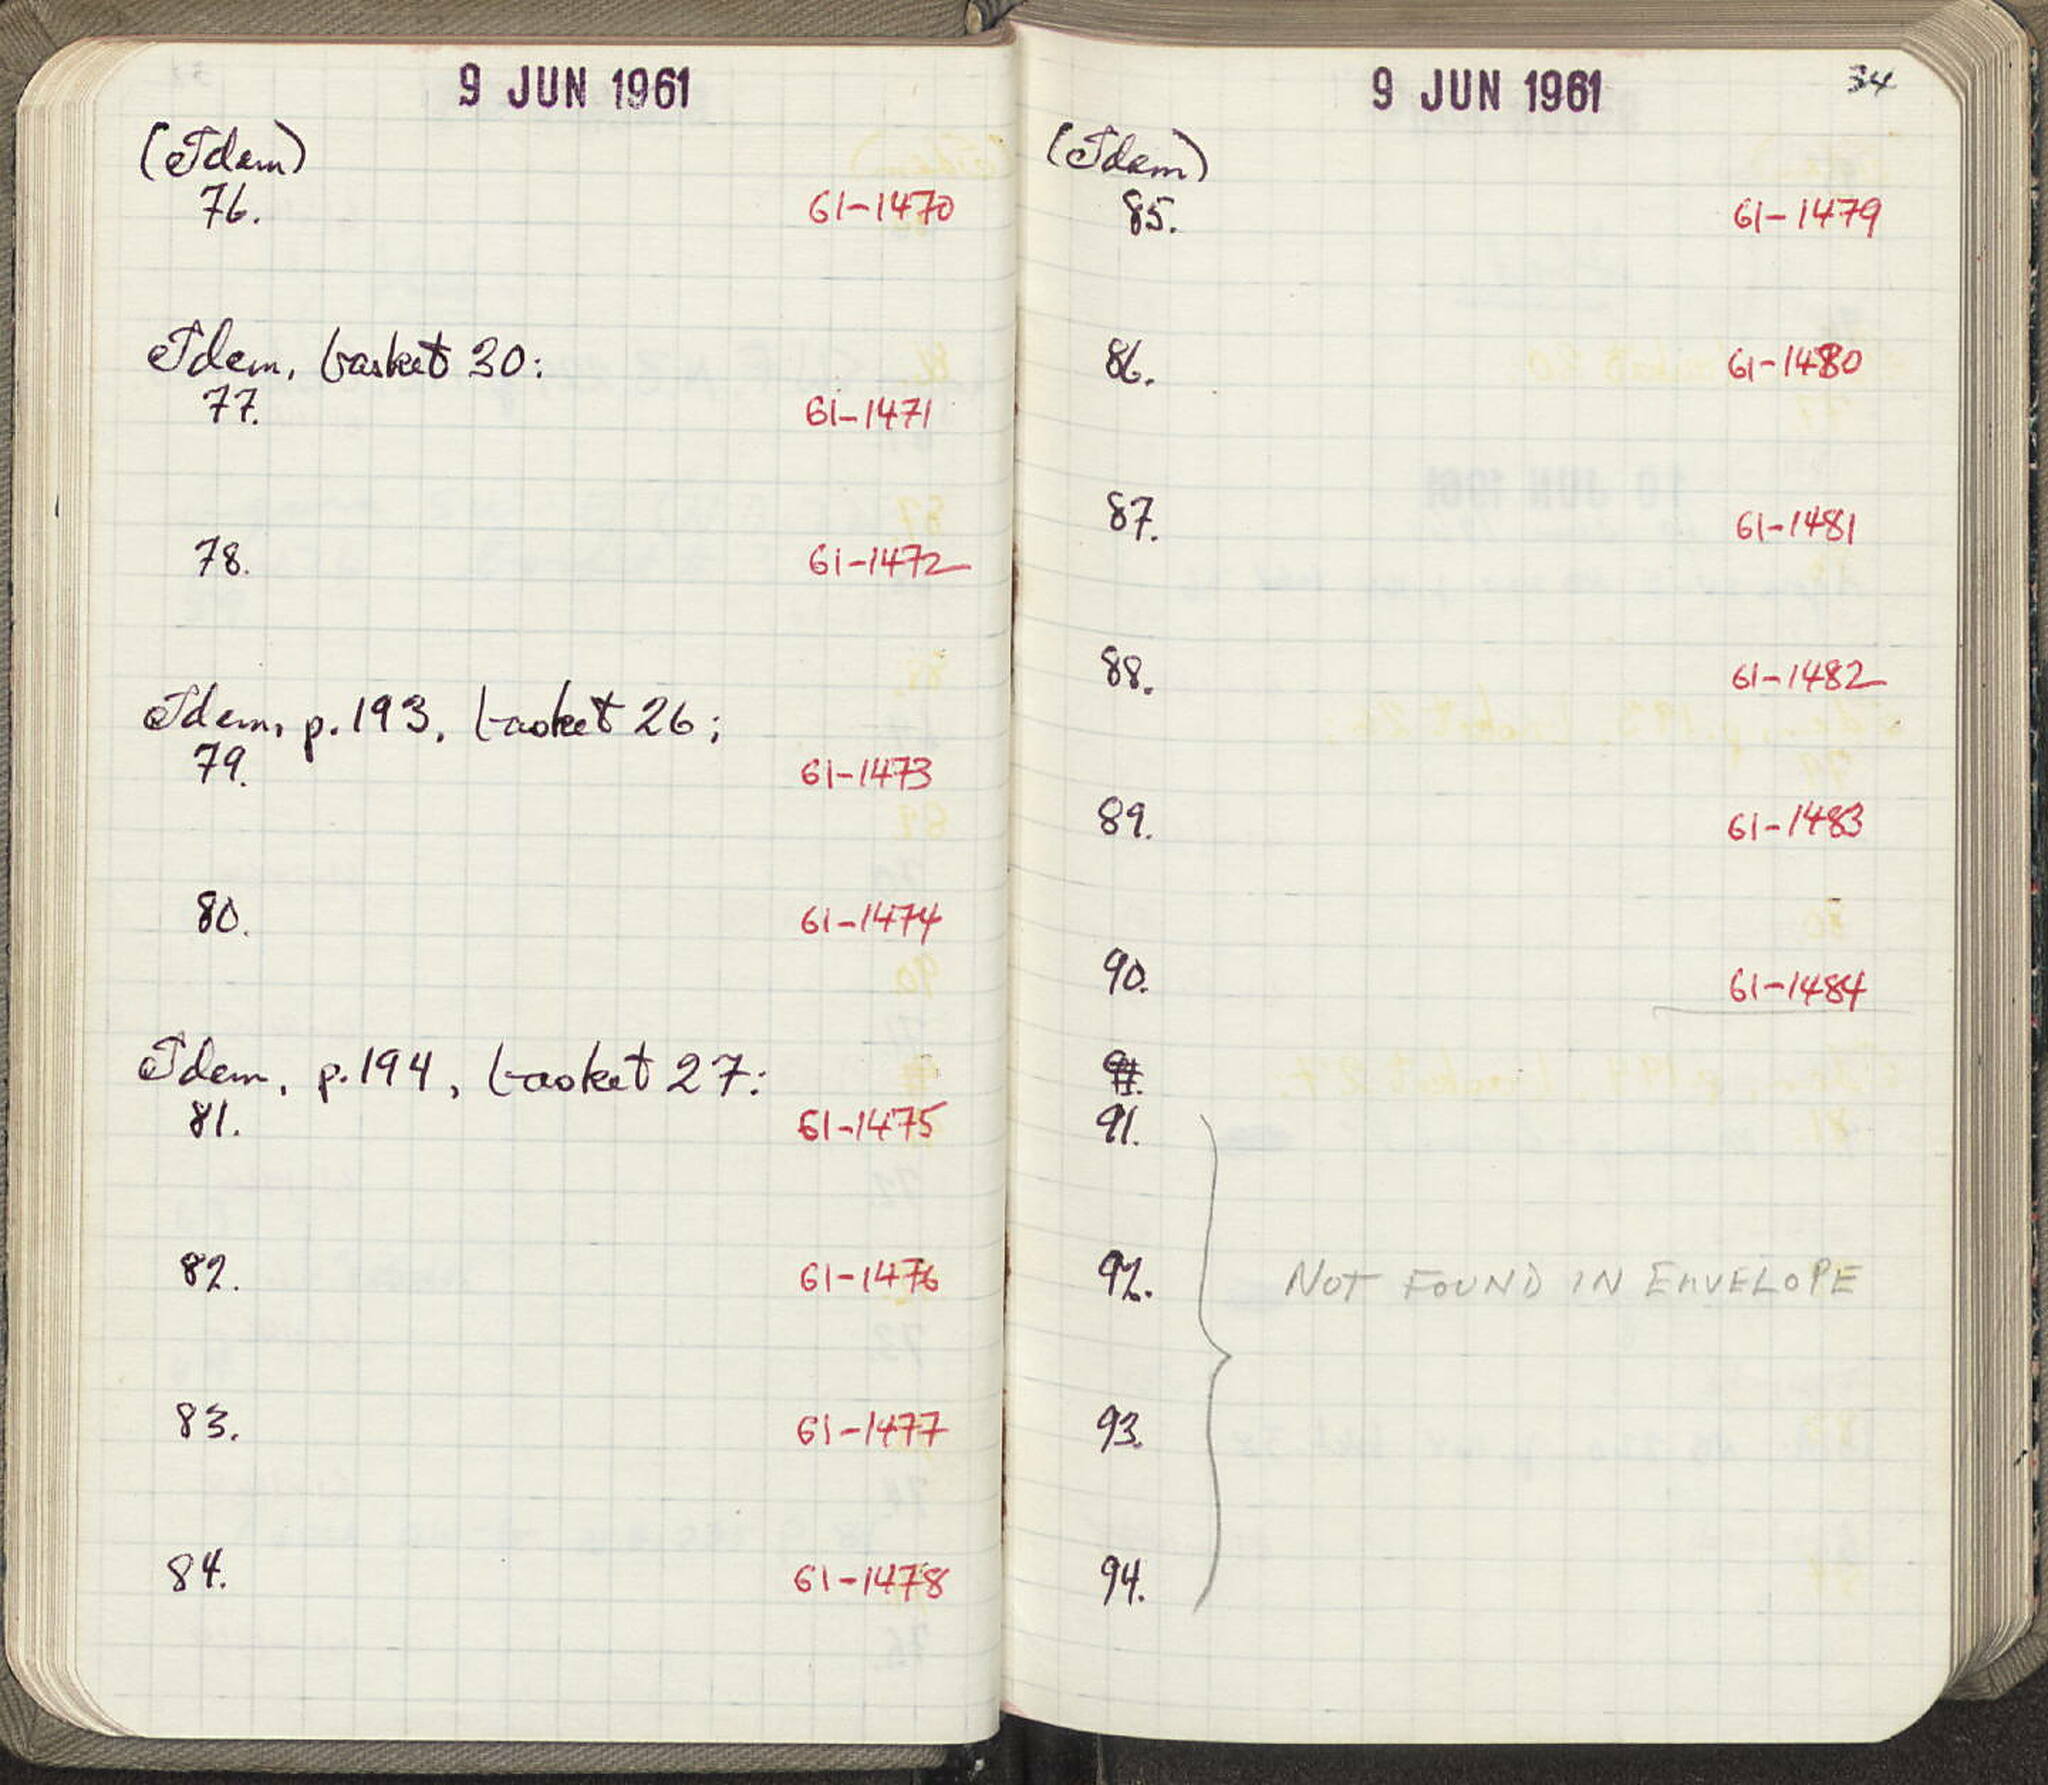 9 JUN 1961
(Idem)
76. 61-1470
Idem, basket 30:
77. 61-1471
78. 61-1472
Idem, p. 193, basket 26;
79. 61-1473
80. 61-1474
Idem, p. 194, basket 27:
81. 61-1475
82. 61-1476
83. 61-1477
84. 61-1478
9 JUN 1961 34
(Idem)
85. 61-1479
86. 61-1480
87. 61-1481
88. 61-1482
89. 61-1483
90. 61-1484
91.
92. NOT FOUND IN ENVELOPE
93.
94.